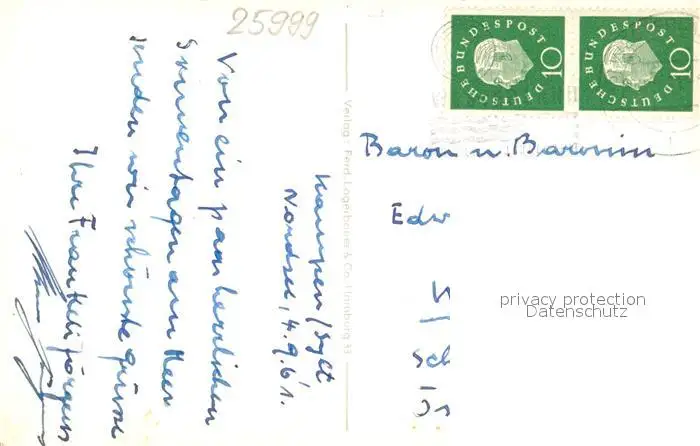 25999
Kampen/Sylt
Nordsee, 4.9.61.
Von ein paar herrlichen
Sonnentagen am Meer
senden wir schönste Grüsse
Ihre
Verlag: Ferd. Lagerbauer & Co. Hamburg 33
DEUTSCHE BUNDESPOST
10
DEUTSCHE BUNDESPOST
10
Baron u. Baronin
Edw
Sch
privacy protection
Datenschutz